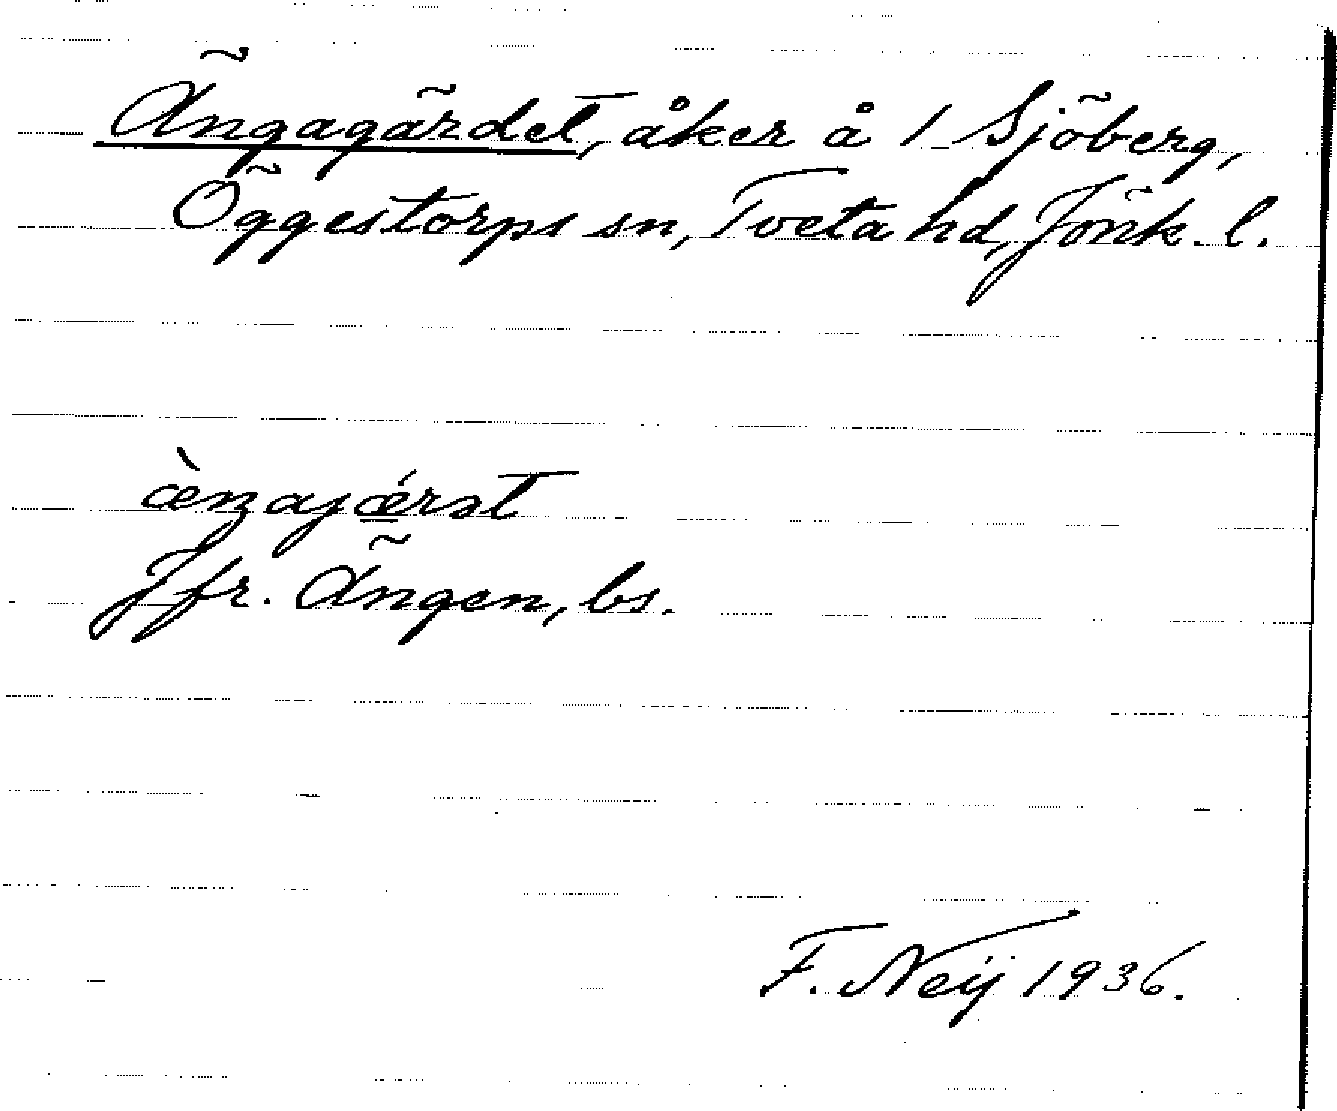 Ängagärdet, åker å 1 Sjöberg,
Öggestorps sn, Tveta hd, Jönk. l.
æ̀ŋajǽrət
Jfr. Ängen, bs.
F. Neij 1936.